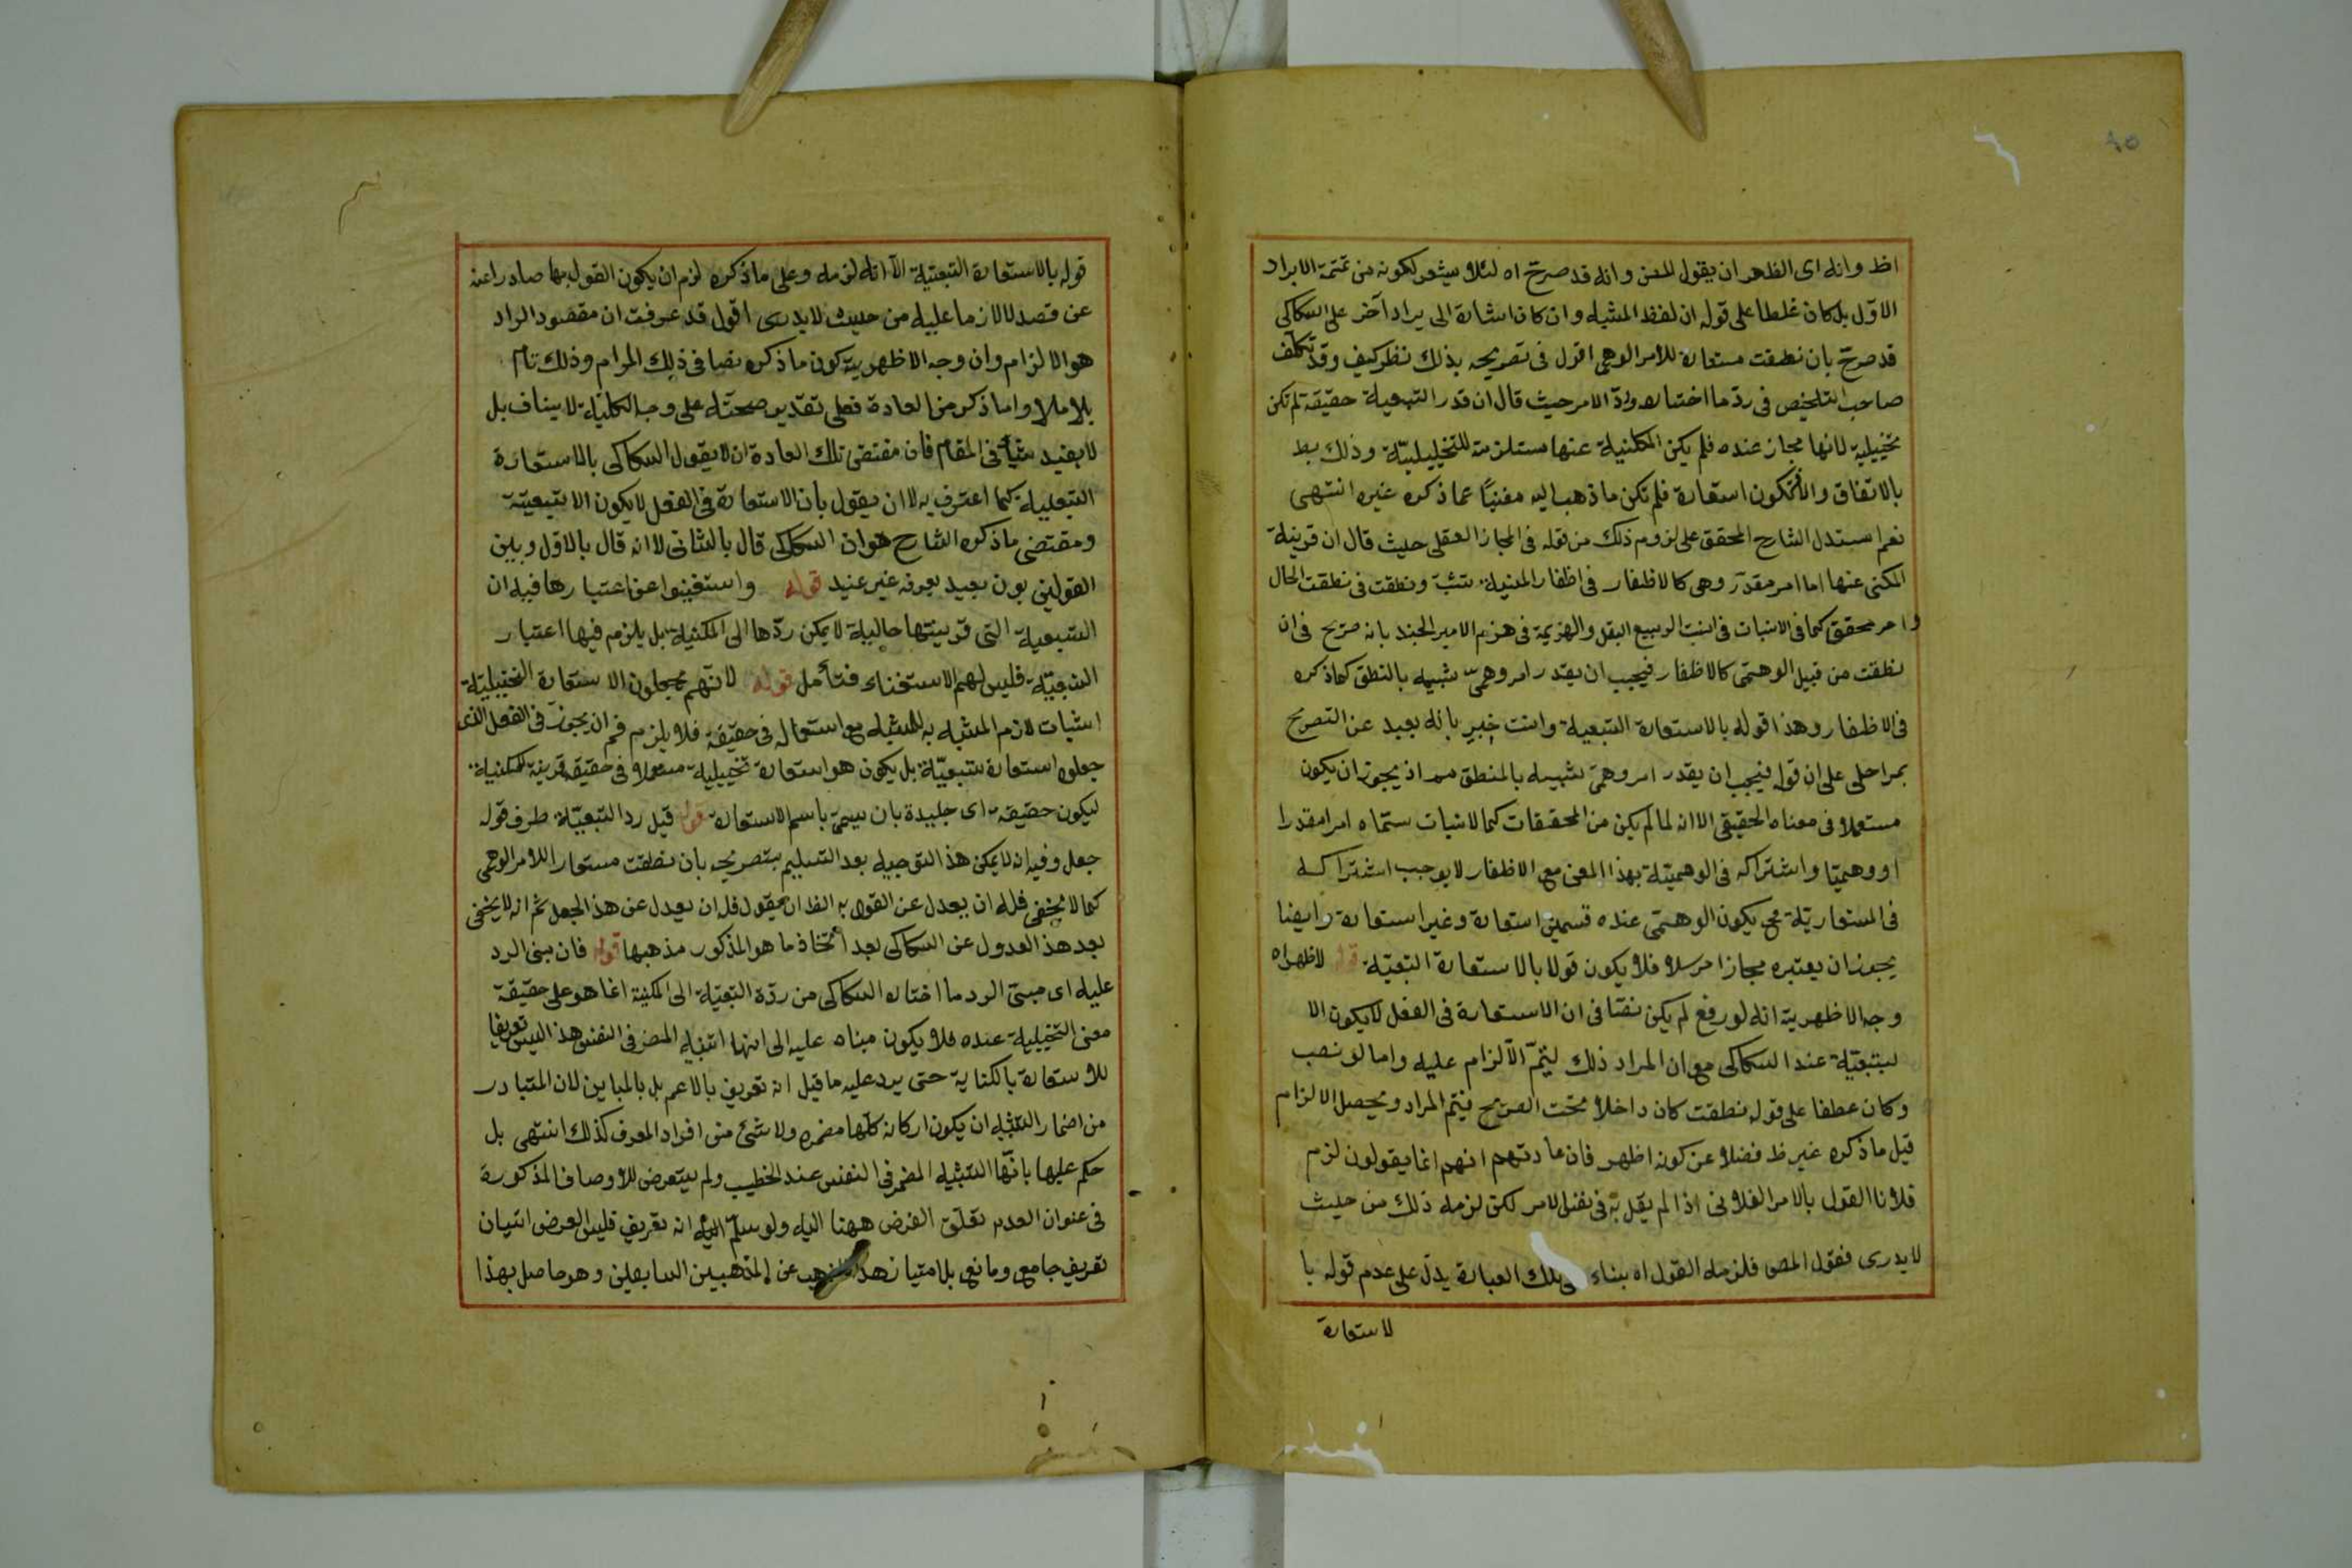 اظ وانه اى الظهر ان يقول للمص وانه قد صرح اه لئلا يشعر لكونه من تتمة الايراد
الاول بل كان غلطا على قوله ان لفظ المشبه وان كان اشارة الى يراد آخر على السكاكى
قد صرح بان نطقت مستعارة للامر الوهمى اقول فى تصريحه بذلك نظر كيف وقد تكلف
صاحب التلخيص فى رد ما اختاره ورد الامر حيث قال ان قدر التبعية حقيقة لم تكن
تخييلية لانها مجاز عنده فلم يكن المكنية عنها مستلزمة للتخييلية وذلك بط
بالاتفاق والا فتكون استعارة فلم تكن ما ذهب اليه مغنيا عما ذكره غيره انتهى
نعم استدل الشارح المحقق على لزوم ذلك من قوله فى المجاز العقلى حيث قال ان قرينة
المكنى عنها اما امر مقدر وهى كالاظفار فى اظفار المنية ونطقت فى نطقت الحال
وامر محقق كما فى الانبات فى انبت الربيع البقل والهزيمة فى هزم الامير الجند بانه صريح فى ان
نطقت من قبيل الوهمى كالاظفار فيجب ان يقدر امر وهمى شبيه بالنطق كما ذكره
فى الاظفار وهذا قوله بالاستعارة التبعية وانت خبير بانه بعيد عن التصريح
بمراحل على ان قوله فيجب ان يقدر امر وهمى شبيه بالمنطق اذ يجوز ان يكون
مستعملا فى معناه الحقيقى الا انه لما لم يكن من المحققات كما لانبات ستماه امرا مقدرا
او وهميا واشتراكه فى الوهمية بهذا المعنى مع الاظفار لا يوجب اشتراكه
فى المستعارية مح يكون الوهمى عنده قسمين استعارة وغير استعارة وايضا
يجوز ان يعتبره مجازا مرسلا فلا يكون قولا بالاستعارة التبعية قوله لاظهر اه
وجه الاظهرية انه لو رفع لم يكن نصا فى ان الاستعارة فى الفعل لا يكون الا
لتبعية عند السكاكى مع ان المراد ذلك ليتم الالزام عليه واما لو نصب
وكان عطفا على قوله نطقت كان داخلا تحت الصريح فيتم المراد ويحصل الالزام
قيل ما ذكره غير ظ فضلا عن كونه اظهر فان عادتهم انهم انما يقولون لزم
فلانا القول بالامر الفلانى اذا لم يقل به فى نفس الامر لكن لزمه ذلك من حيث
لا يدرى فقول المص فلزمه القول اه بناء تلك العبارة يدل على عدم قوله با
لاستعارة
قوله بالاستعارة التبعية الا انه لزمه وعلى ما ذكره لزم ان يكون القول بها صادرا عنه
عن قصد لا لازما عليه من حيث لا يدرى اقول قد عرفت ان مقصود الراد
هو الالزام وان وجه الاظهرية كون ما ذكره نصا فى ذلك المرام وذلك تام
بلا ملا واما ذكر من العادة فعلى تقدير صحته على وجه الكلية لا ينافى بل
لا يفيد شيأ فى المقام فان مقتضى تلك العادة ان لا يقول السكاكى بالاستعارة
التبعية كما اعترف به لا ان يقول بان الاستعارة فى الفعل لا يكون الا تبعية
ومقتضى ما ذكره الشارح هو ان السكاكى قال بالثانى لا انه قال بالاول وبين
القولين بون بعيد يعرفه غير عنيد قوله واستغنوا عن اعتبارها فيه ان
التبعية التى قرينتها حالية لا يمكن ردها الى المكنية بل يلزم فيها اعتبار
التبعية فليس لهم الاستغناء فتأمل قوله لانهم يجعلون الاستعارة التخييلية
اثبات لازم المشبه به للمشبه مع استعماله فى حقيقة فلا يلزم فم ان يجوز فى الفعل الذى
جعلوه استعارة تبعية بل يكون هو استعارة تخييلية مستعملا فى حقيقة قرينة للمكنية
ليكون حقيقة اى جليدة بان يسمى باسم الاستعارة قوله قيل رد التبعية طرف قوله
جعل وفيه ان لا يمكن هذا التوجيه بعد التسليم بتصريحه بان نطقت مستعارا للامر الوهمى
كما لا يخفى فله ان يعدل عن القول به الفا ان يقول فله ان يعدل عن هذا الجعل ثم انه لا يخفى
بعد هذا العدول عن السكاكى بعد اتخاذ ما هو المذكور مذهبها قوله فان مبنى الرد
عليه اى مبنى الرد ما اختاره السكاكى من ردة التبعية الى المكنية انما هو على حقيقة
معنى التخييلية عنده فلا يكون مبناه عليه الى انها التشبيه المضمر فى النفس هذا ليس تعريفا
للاستعارة بالكناية حتى يرد عليه ما قيل انه تعريف بالاعم بل بالمباين لان المتبادر
من اضمار التشبيه ان يكون اركانه كلها مضمرة ولا شئ من افراد المعرف كذلك انتهى بل
حكم عليها بانها التشبيه المضمر فى النفس عند الخطيب ولم يتعرض للاوصاف المذكورة
فى عنوان العدم تعلق الغرض ههنا اليه ولو سلم انه تعريف فليس الغرض اتيان
تعريف جامع ومانع بل امتياز هذا المذهب عن المذهبين السابقين وهو حاصل بهذا